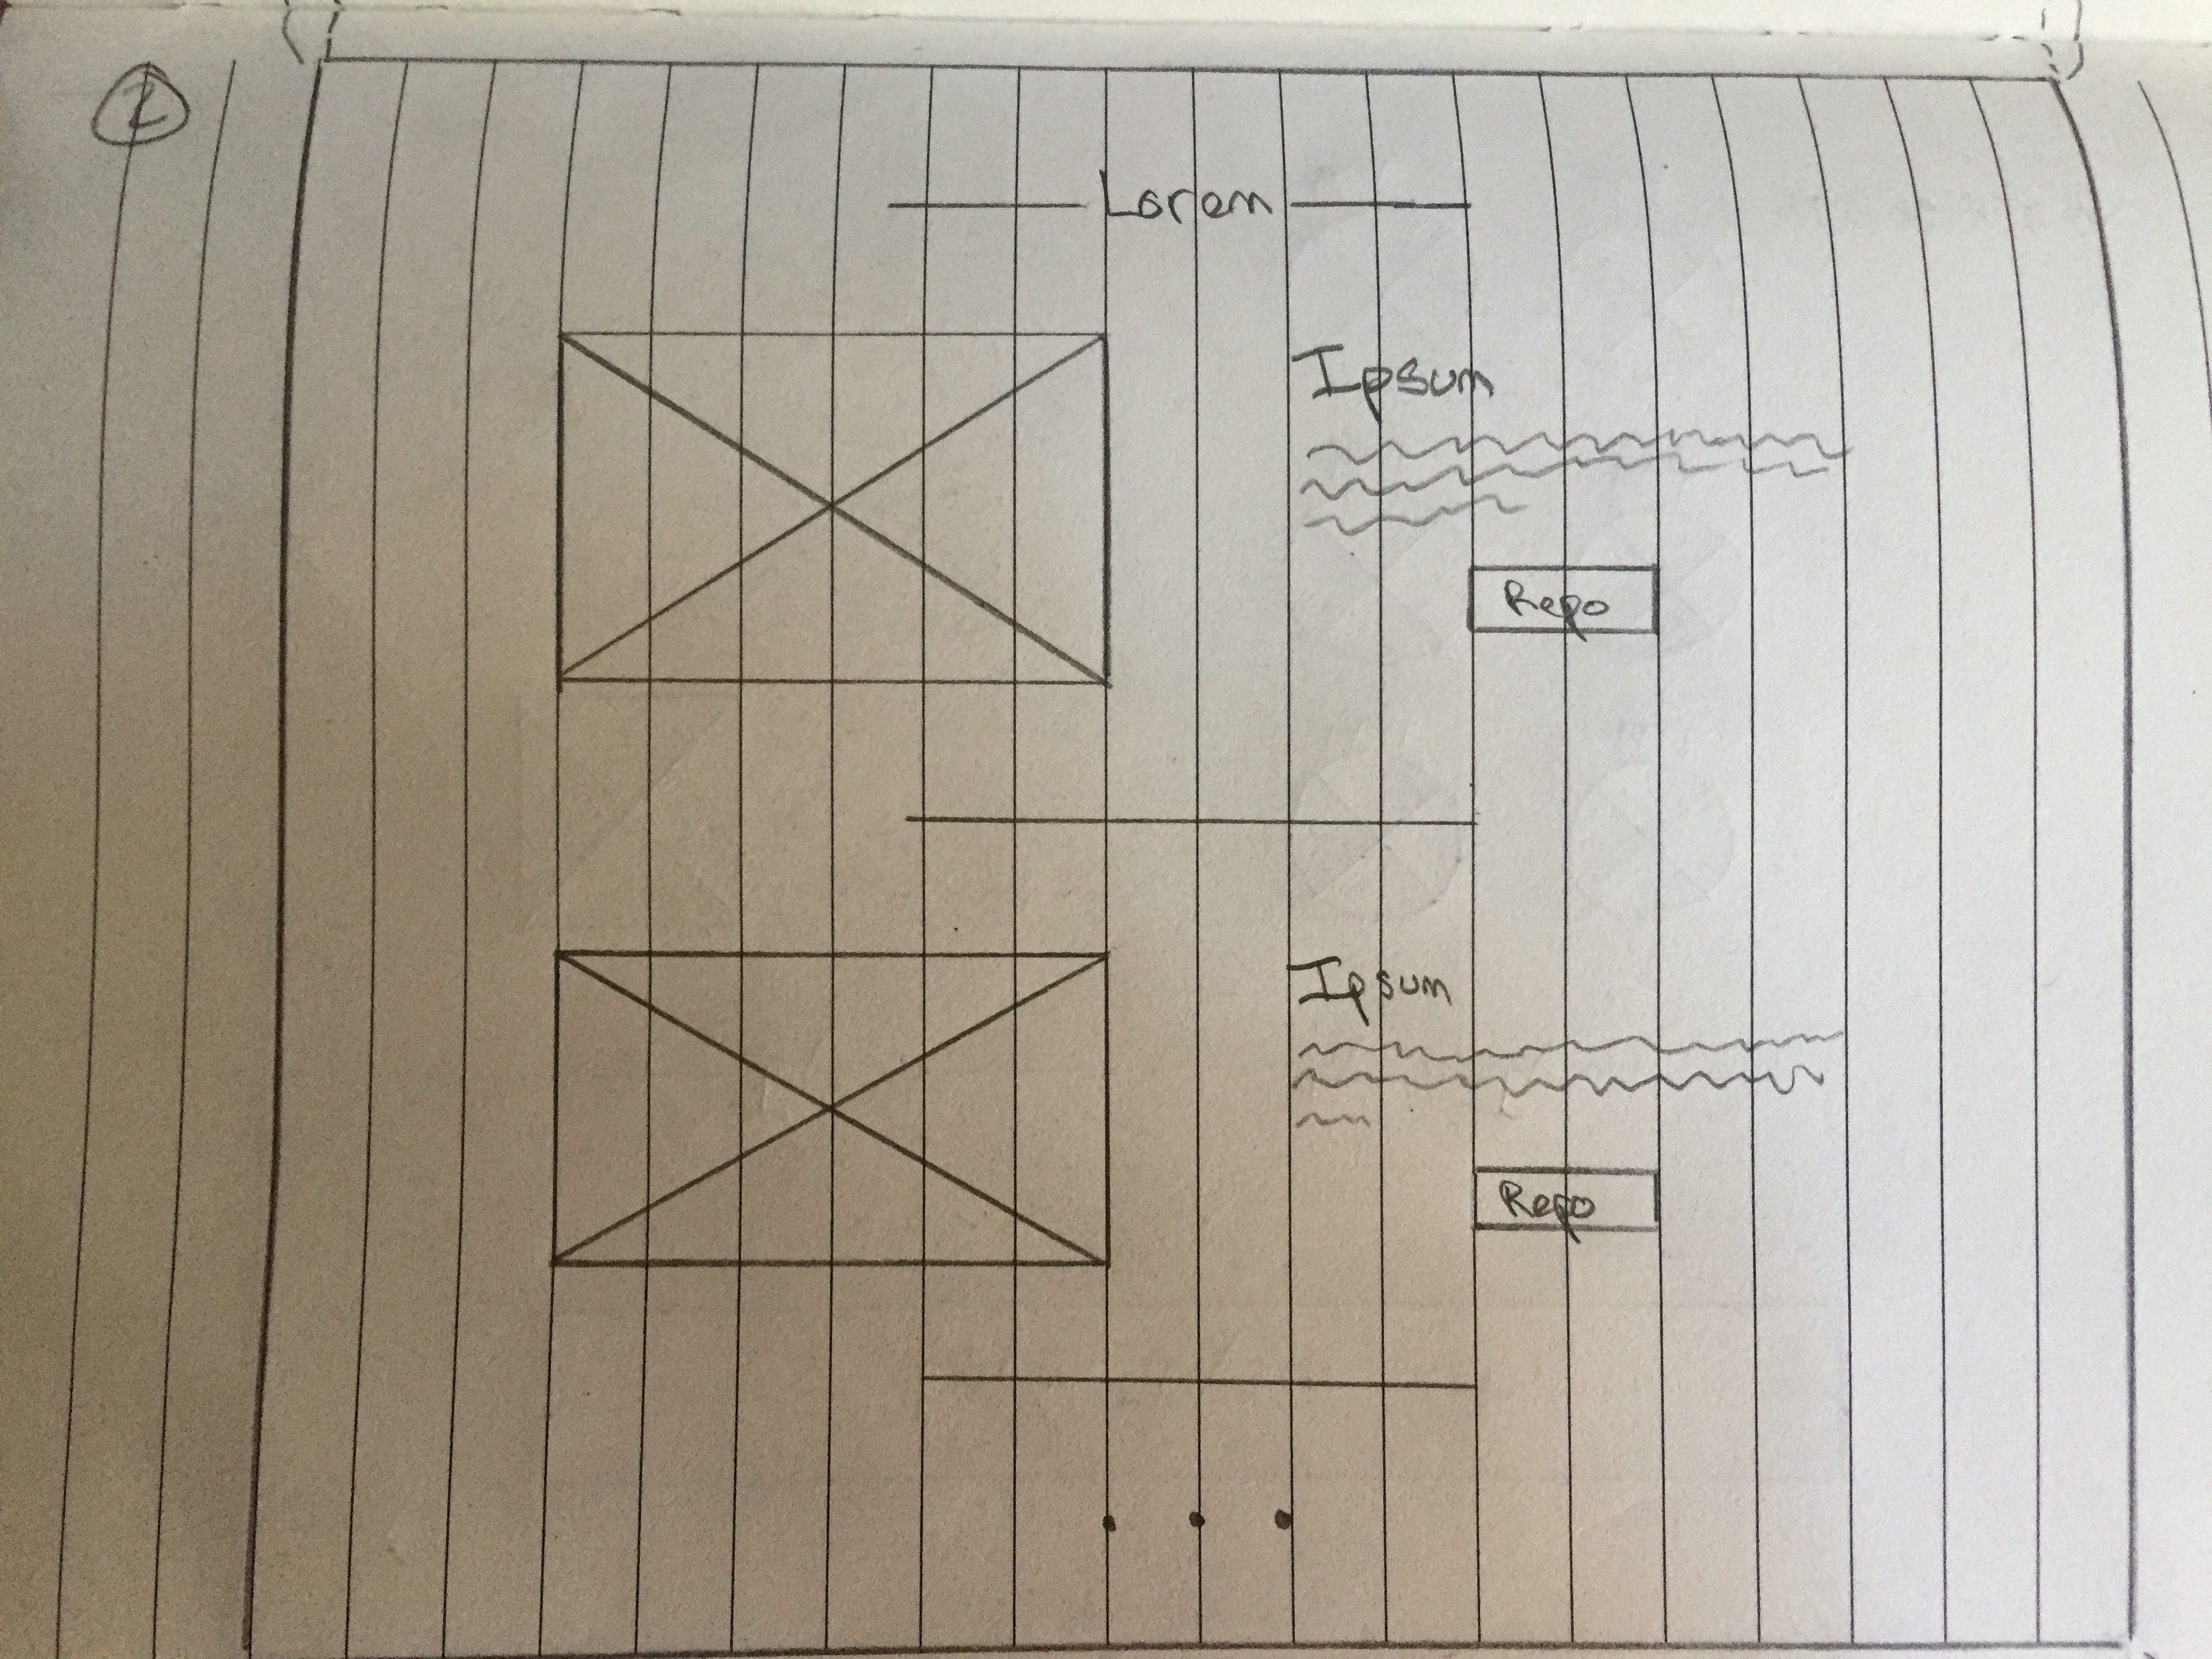 2
Lorem
Ipsum
Repo
Ipsum
Repo